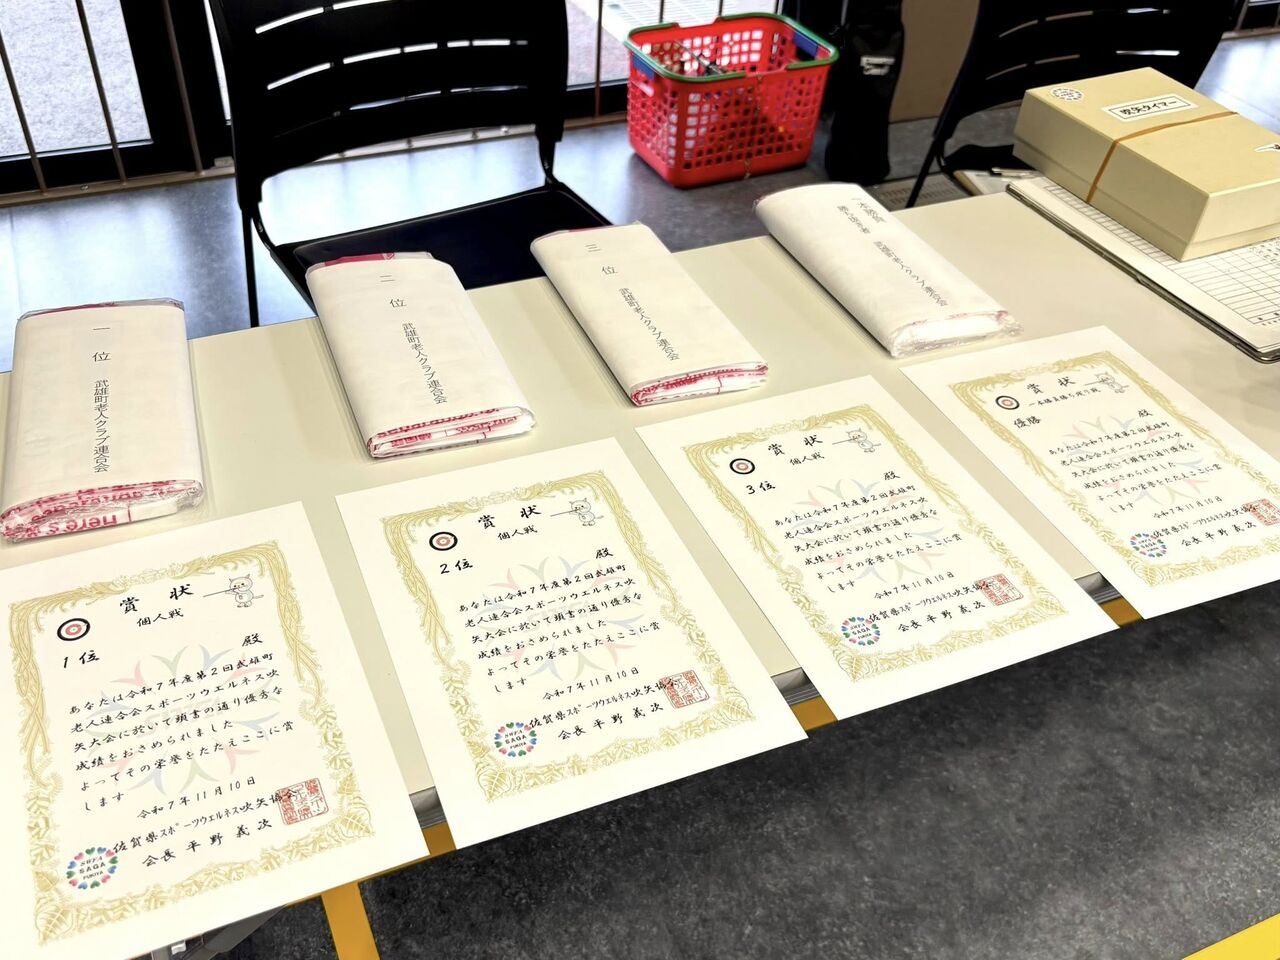 一位
武雄町老人クラブ連合会
二位
武雄町老人クラブ連合会
三位
武雄町老人クラブ連合会
一本勝負
勝ち抜き者 武雄町老人クラブ連合会
吹矢タイマー
here's
賞状
個人戦
1位
殿
あなたは令和7年度第2回武雄町
老人連合会スポーツウエルネス吹
矢大会に於いて頭書の通り優秀な
成績をおさめられました
よってその栄誉をたたえここに賞
します
令和7年11月10日
佐賀県スポーツウエルネス吹矢協会
会長 平野義次
SWFA
SAGA
FUKIYA
賞状
個人戦
2位
殿
あなたは令和7年度第2回武雄町
老人連合会スポーツウエルネス吹
矢大会に於いて頭書の通り優秀な
成績をおさめられました
よってその栄誉をたたえここに賞
します
令和7年11月10日
佐賀県スポーツウエルネス吹矢協会
会長 平野義次
SWFA
SAGA
FUKIYA
賞状
個人戦
3位
殿
あなたは令和7年度第2回武雄町
老人連合会スポーツウエルネス吹
矢大会に於いて頭書の通り優秀な
成績をおさめられました
よってその栄誉をたたえここに賞
します
令和7年11月10日
佐賀県スポーツウエルネス吹矢協会
会長 平野義次
SWFA
SAGA
FUKIYA
賞状
一本勝負勝ち抜り戦
優勝
殿
あなたは令和7年度第2回武雄町
老人連合会スポーツウエルネス吹
矢大会に於いて頭書の通り優秀な
成績をおさめられました
よってその栄誉をたたえここに賞
します
令和7年11月10日
佐賀県スポーツウエルネス吹矢協会
会長 平野義次
SAGA